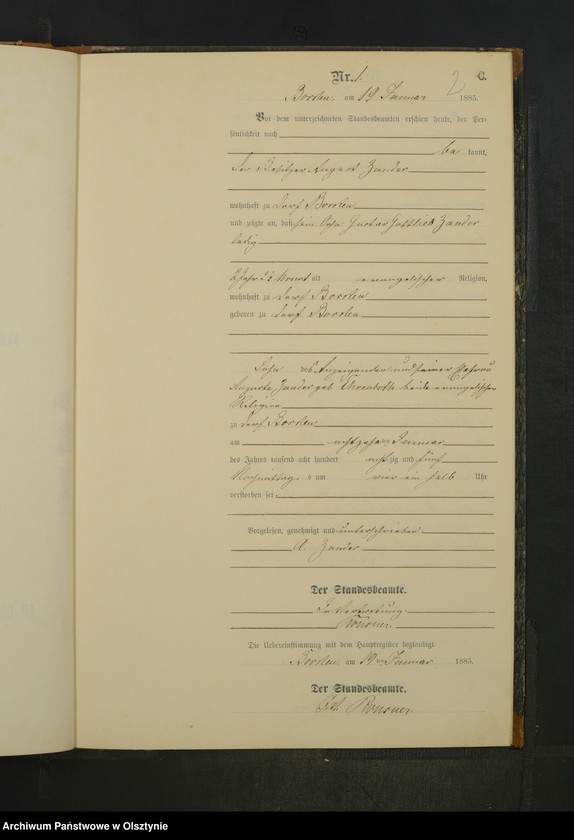 Nr. 1. 2 C.
am 19 Januar 1885.
Vor dem unterzeichneten Standesbeamten erschien heute, der Per-
sönlichkeit nach
be kannt,
der Besitzer August Zander
wohnhaft zu Dorf
und zeigte an, daß sein Sohn Gustav Gottlieb Zander
ledig
alt evangelischer Religion,
wohnhaft zu Dorf
geboren zu Dorf
Sohn des Anzeigenden und seiner Ehefrau
Auguste Zander geb. beide evangelischer
Religion
zu Dorf
am achtzehnten Januar
des Jahres tausend acht hundert achtzig und fünf
Nachmittags um vier ein halb Uhr
verstorben sei
Vorgelesen, genehmigt und unterschrieben
A. Zander
Der Standesbeamte.
In Vertretung
Die Uebereinstimmung mit dem Hauptregister beglaubigt
am 19ten Januar 1885.
Der Standesbeamte.
Archiwum Państwowe w Olsztynie